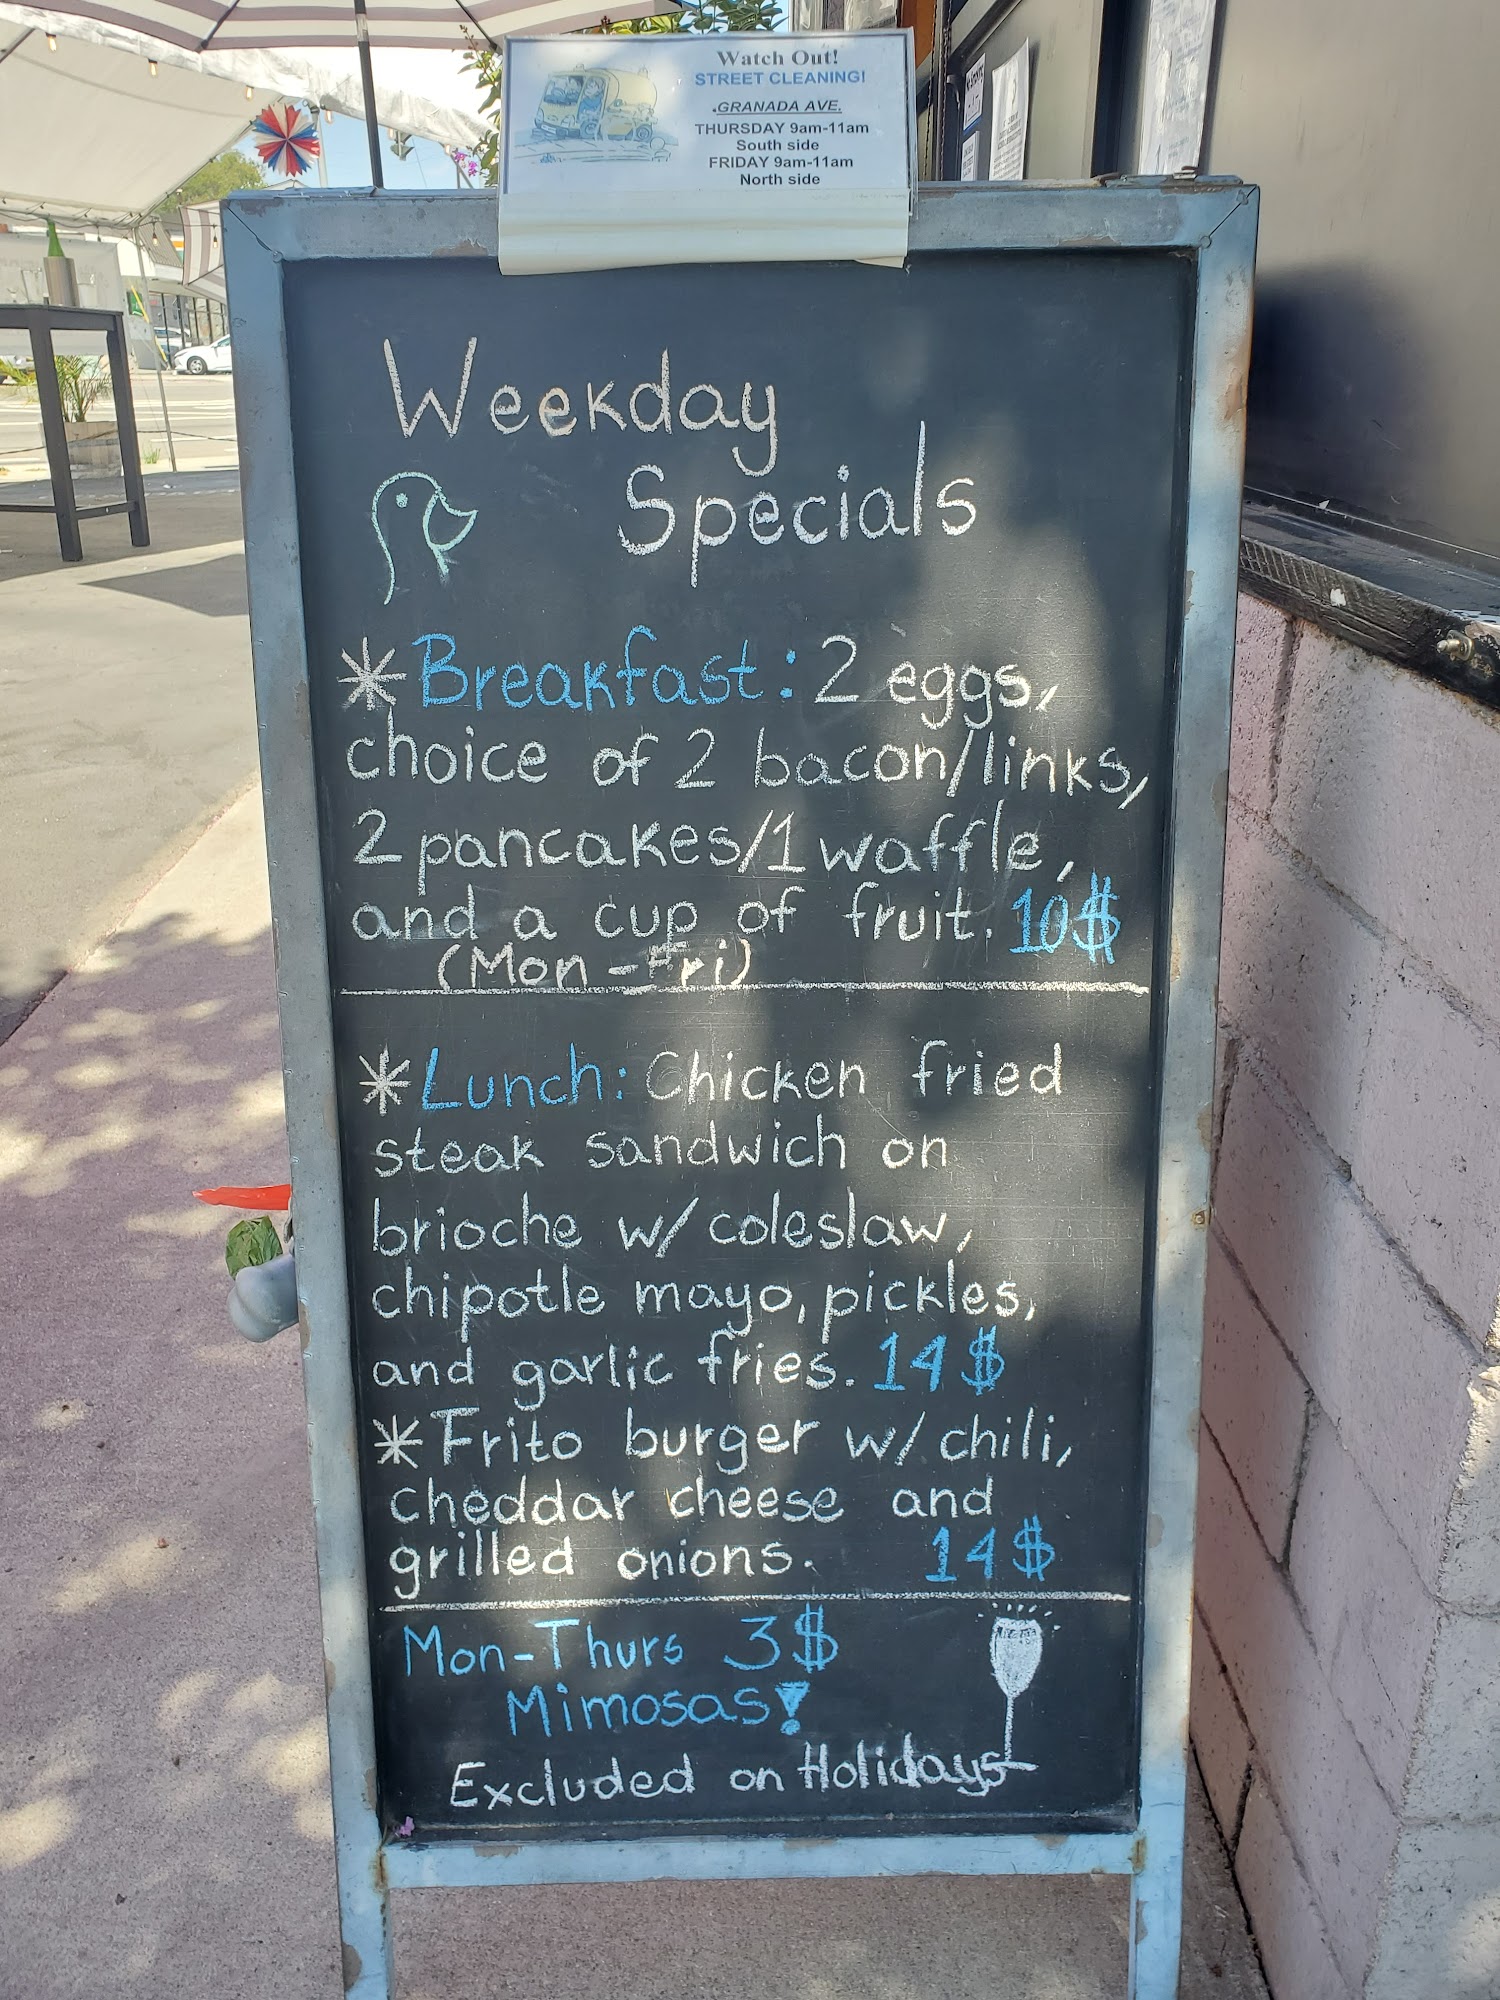 Watch Out!
STREET CLEANING!
GRANADA AVE.
THURSDAY 9am-11am
South side
FRIDAY 9am-11am
North side
Weekday
Specials
*Breakfast: 2 eggs,
choice of 2 bacon/links,
2 pancakes/1 waffle,
and a cup of fruit. 10$
(Mon-Fri)
*Lunch: Chicken fried
steak sandwich on
brioche w/ coleslaw,
chipotle mayo, pickles,
and garlic fries. 14$
*Frito burger w/ chili,
cheddar cheese and
grilled onions. 14$
Mon-Thurs 3$
Mimosas!
Excluded on Holidays